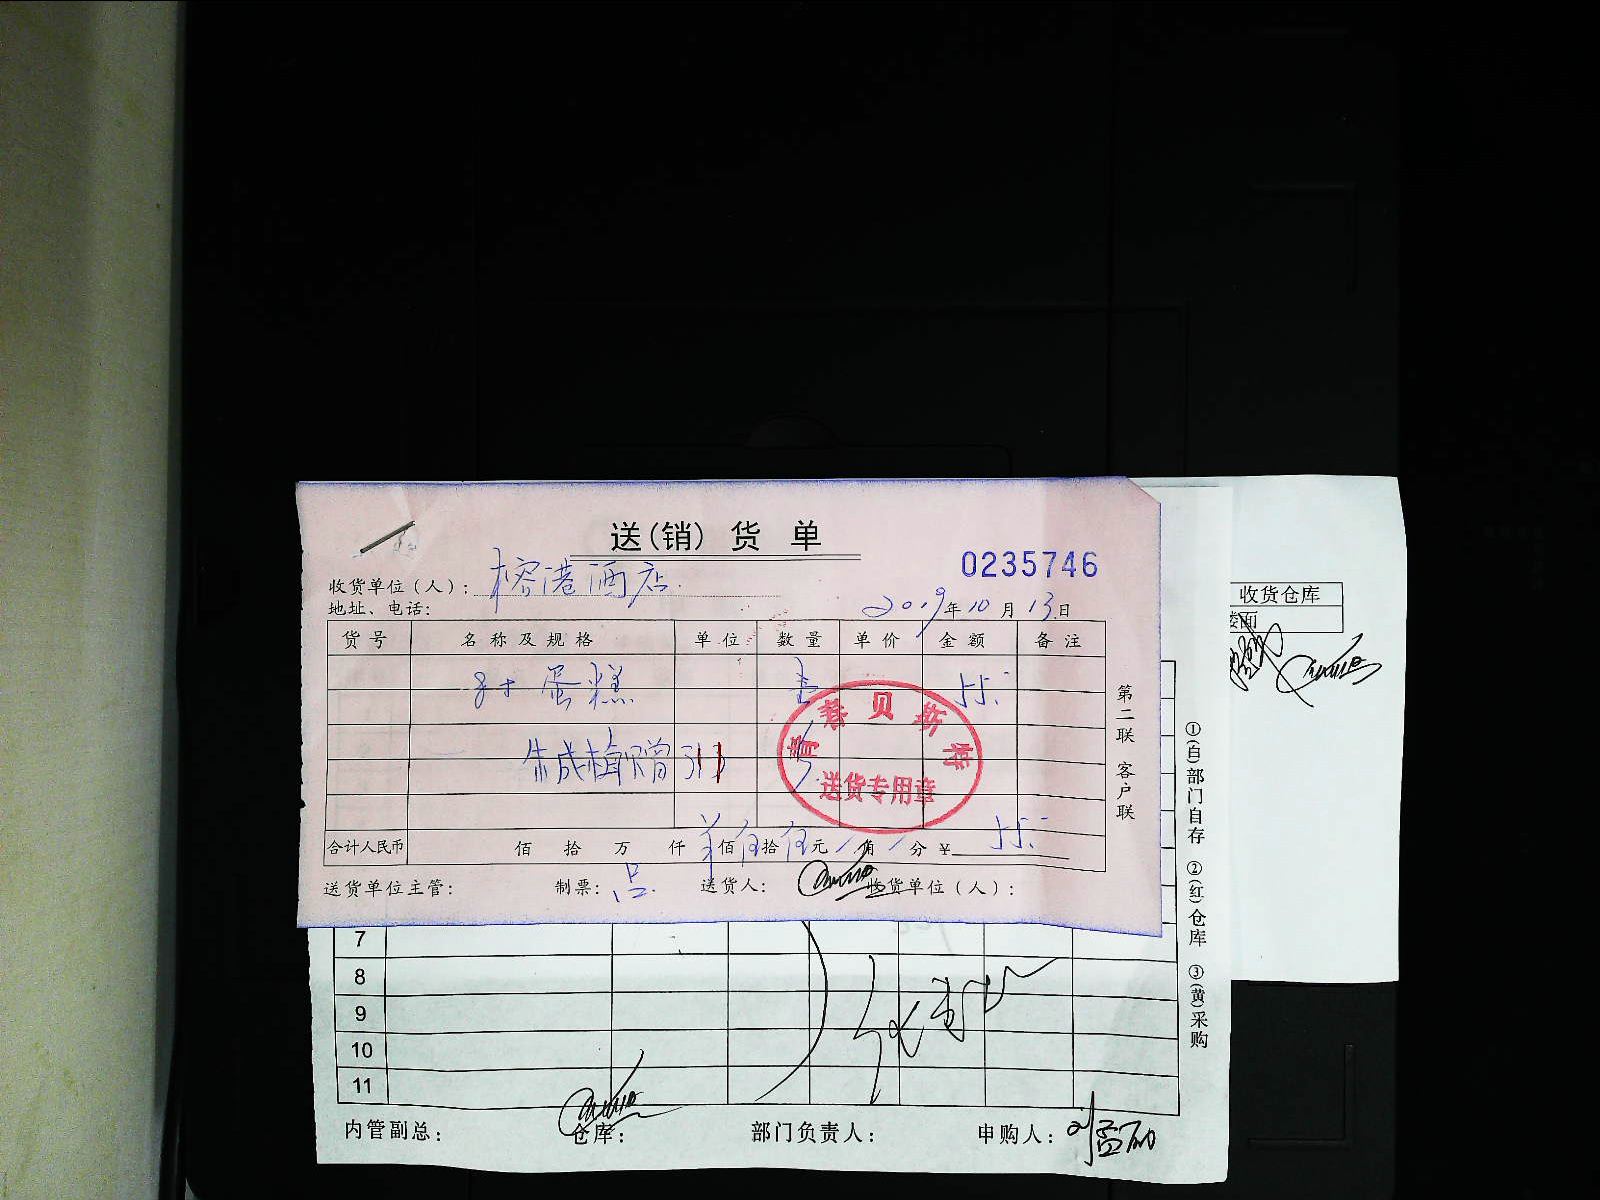 送(销)货单
0235746
收货单位(人): 榕港酒店.
地址、电话:
2019年10月13日
货号 名称及规格 单位 数量 单价 金额 备注
8寸 蛋糕 壹 55.
朱成楠 赠 313
青春贝斯特
送货专用章
合计人民币 佰 拾 万 仟 佰伍拾伍元 角 分 ¥ 55.
送货单位主管: 制票: 吕. 送货人: 收货单位(人):
第二联 客户联
收货仓库
楼面
①(白)部门自存 ②(红)仓库 ③(黄)采购
7
8
9
10
11
内管副总: 仓库: 部门负责人: 申购人: